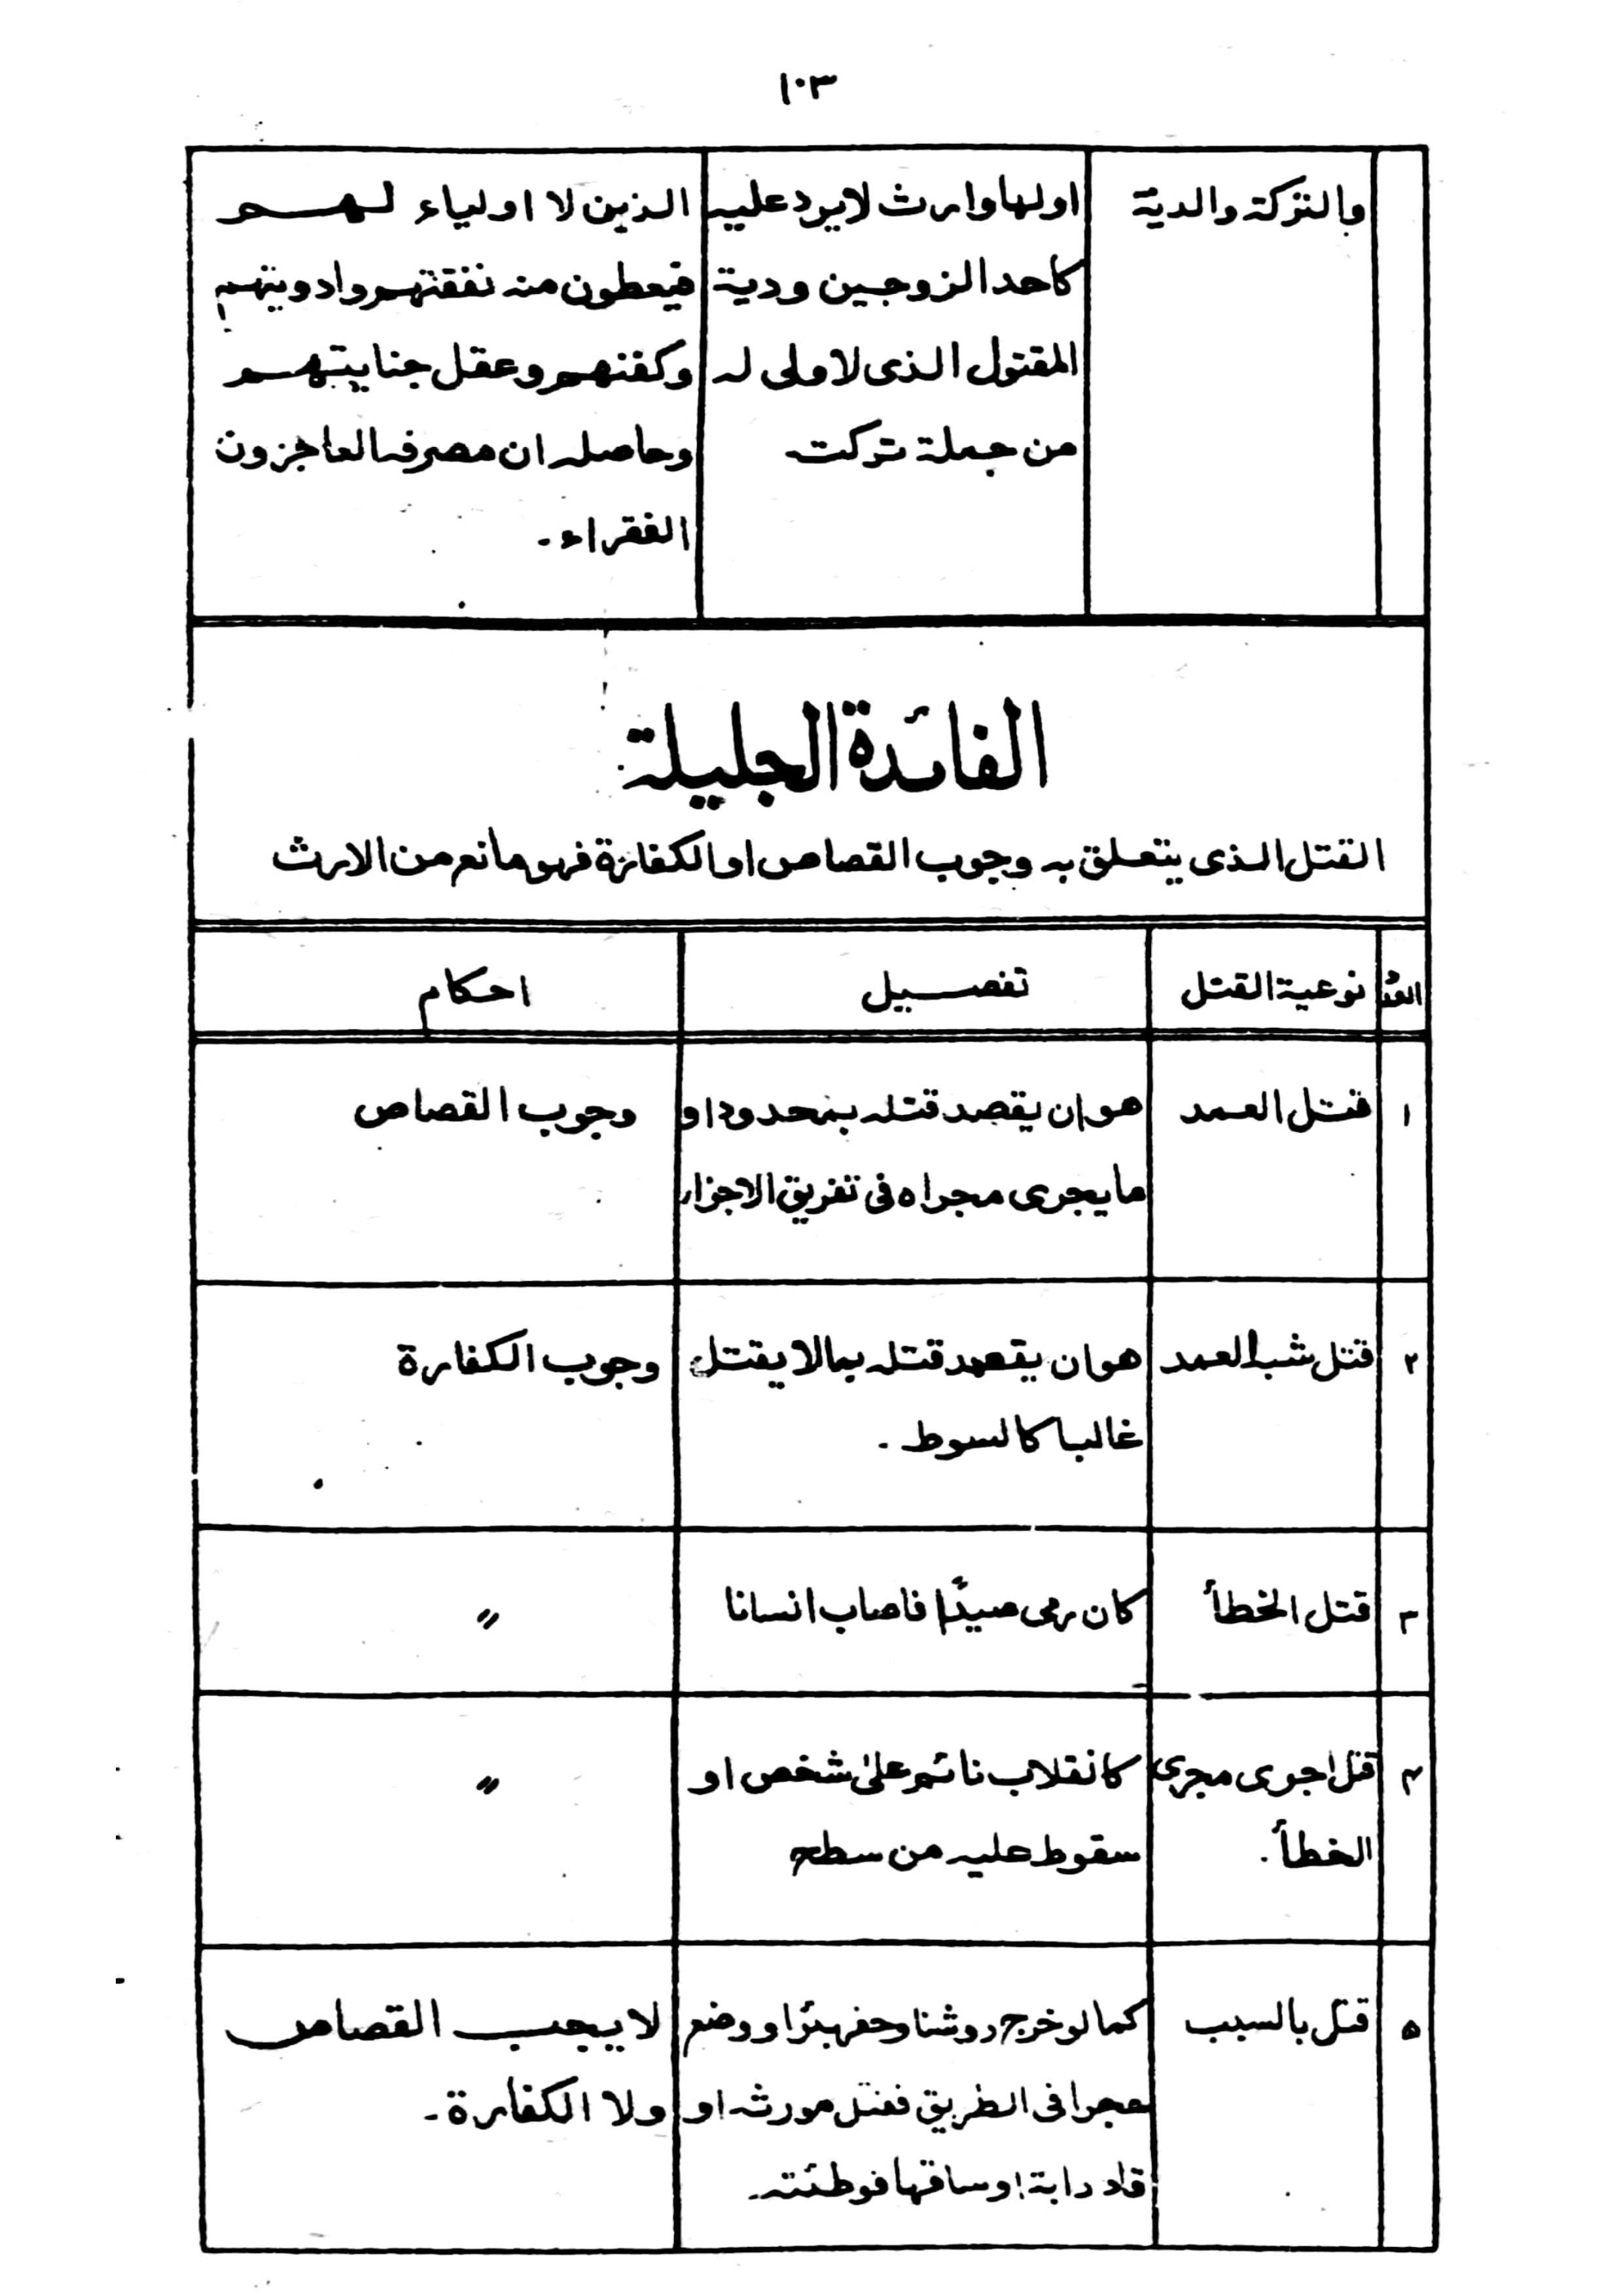 ١٠٣
والتركة والدية
اولها وارث لا يرد عليه
كاحد الزوجين ودية
المقتول الذى لا ولى له
من جملة تركت
الذين لا اولياء لهم
فيعطون منه نفقتهم وادويتهم
وكفنهم وعقل جنايتهم
وحاصله ان مصرفه العاجزون
الفقراء ۔
الفائدة الجليلة
القتل الذى يتعلق به وجوب القصاص او الكفارة فهو مانع من الارث
نوعية القتل
تفصيل
احكام
١
قتل العمد
هو ان يقصد قتله بمحدود او
ما يجرى مجراه فى تفريق الاجزاء
وجوب القصاص
٢
قتل شبه العمد
هو ان يقصد قتله بما لا يقتل
غالبا كالسوط ۔
وجوب الكفارة
٣
قتل الخطأ
كان رمى صيدًا فاصاب انسانا
〃
٤
قتل اجرى مجرى
الخطأ ۔
كانقلاب نائم على شخص او
سقوط عليه من سطح
〃
٥
قتل بالسبب
كما لو خرج روشنا وحفر بئرا و وضع
حجرا فى الطريق فقتل مورثه او
قاد دابة او ساقها فوطئته
لا يجب القصاص
ولا الكفارة ۔